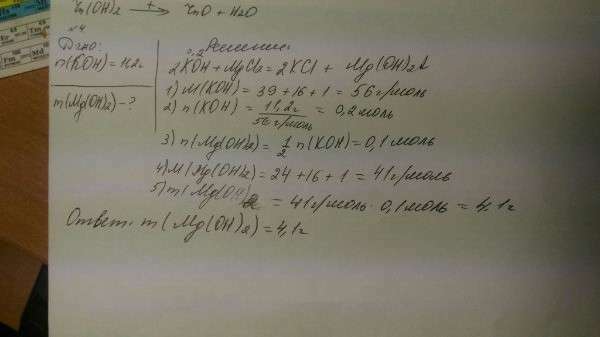 Zn(OH)2 →t ZnO + H2O
№4
Дано:
m(KOH)=11,2г
m(Mg(OH)2)-?
Решение:
2KOH+MgCl2=2KCl + Mg(OH)2↓
1) M(KOH) = 39+16+1 = 56г/моль
2) n(KOH) = 11,2г / 56г/моль = 0,2моль
3) n(Mg(OH)2) = 1/2 n(KOH)=0,1моль
4) M(Mg(OH)2) = 24+16+1 = 41г/моль
5) m(Mg(OH)2 = 41г/моль · 0,1моль = 4,1г
Ответ: m(Mg(OH)2) = 4,1г